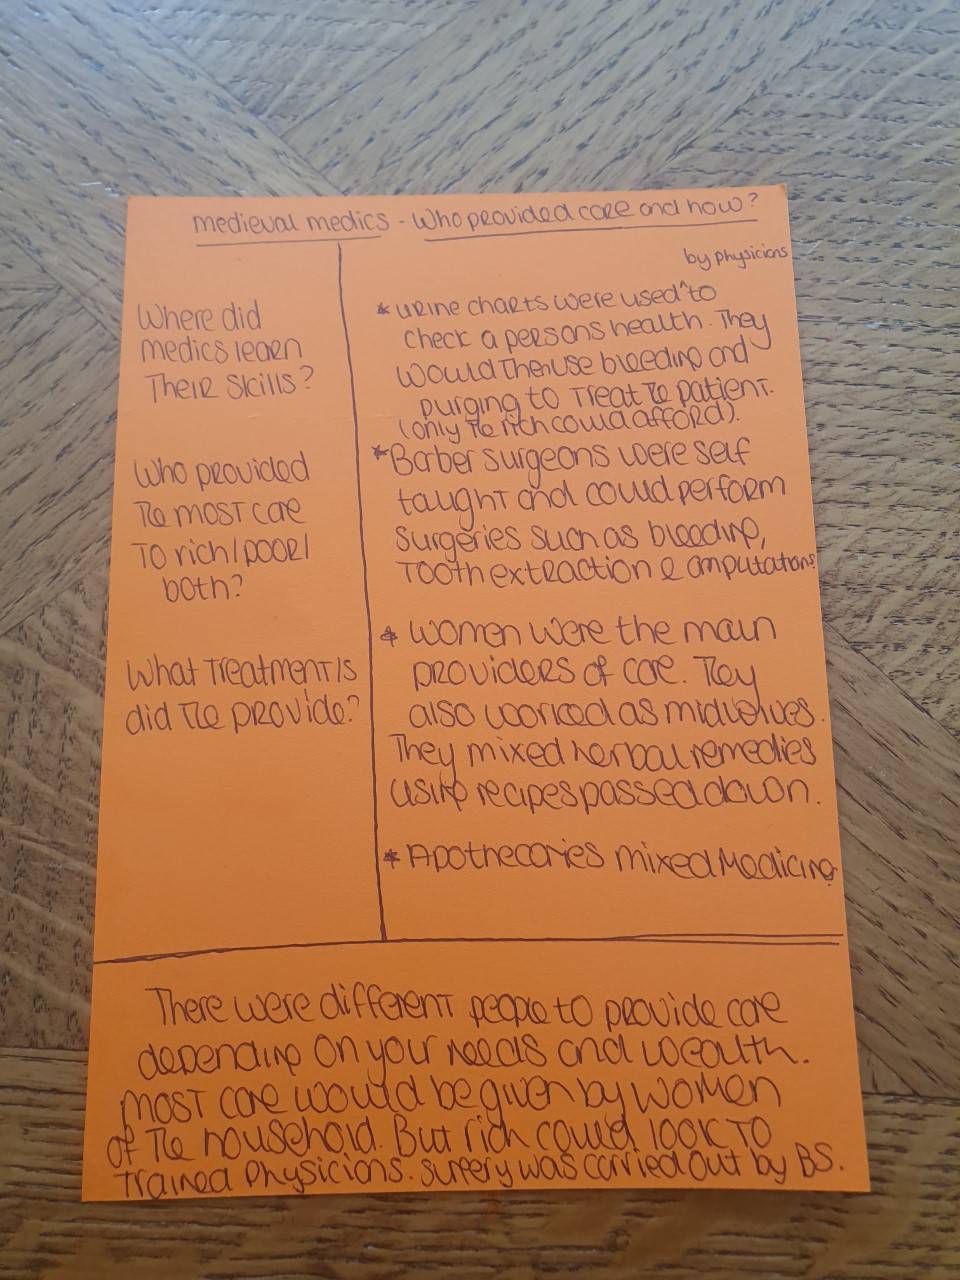 medieval medics - Who provided care and how?
Where did
medics learn
Their skills?
Who provided
The most care
To rich/poor/
both?
What Treatment/s
did The provide?
by physicians
* urine charts were used ^ to
check a persons health. They
would then use bleeding and
purging to Treat The patient.
(only The rich could afford).
* Barber surgeons were self
taught and could perform
surgeries such as bleeding,
Tooth extraction & amputations
* Women were the main
providers of care. They
also worked as midwives.
They mixed herbal remedies
using recipes passed down.
* Apothecaries mixed Medicine
There were different people to provide care
depending on your needs and wealth.
most care would be given by women
of The household. But rich could look To
Trained Physicians. surgery was carried out by BS.